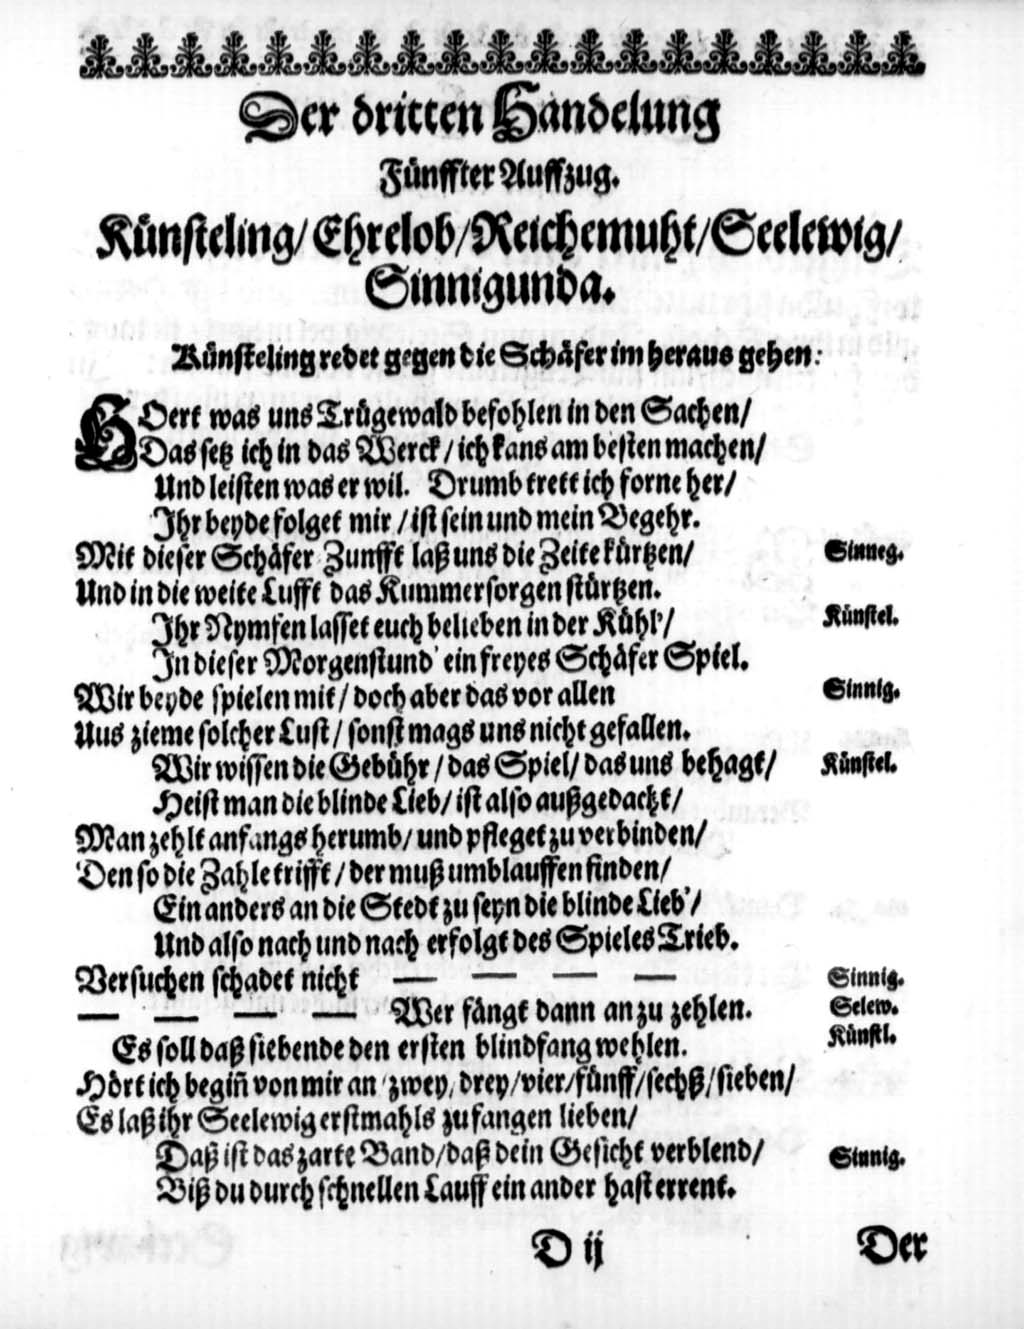 Der dritten Handelung
Fünffter Auffzug.
Künsteling/ Ehrelob/ Reichemuht/ Seelewig/
Sinnigunda.
Künsteling redet gegen die Schäfer im heraus gehen:
HOert was uns Trügewald befohlen in den Sachen/
Das setz ich in das Werck / ich kans am besten machen/
Und leisten was er wil. Drumb trett ich forne her/
Ihr beyde folget mir / ist sein und mein Begehr.
Mit dieser Schäfer Zunfft laß uns die Zeite kürtzen/ Sinneg.
Und in die weite Lufft das Kummersorgen stürtzen.
Ihr Nymfen lasset euch belieben in der Kühl'/ Künstel.
In dieser Morgenstund' ein freyes Schäfer Spiel.
Wir beyde spielen mit / doch aber das vor allen Sinnig.
Uus zieme solcher Lust / sonst mags uns nicht gefallen.
Wir wissen die Gebühr / das Spiel/ das uns behagt/ Künstel.
Heist man die blinde Lieb/ ist also außgedacht/
Man zehlt anfangs herumb/ und pfleget zu verbinden/
Den so die Zahle trifft / der muß umblauffen finden/
Ein anders an die Stedt zu seyn die blinde Lieb'/
Und also nach und nach erfolgt des Spieles Trieb.
Versuchen schadet nicht — — — — Sinnig.
— — — — Wer fängt dann an zu zehlen. Selew.
Es soll daß siebende den ersten blindfang wehlen. Künstl.
Hört ich begiñ von mir an / zwey/ drey/ vier/ fünff/ sechß/ sieben/
Es laß ihr Seelewig erstmahls zu fangen lieben/
Daß ist das zarte Band/ daß dein Gesicht verblend/ Sinnig.
Biß du durch schnellen Lauff ein ander hast errent.
D ij Der